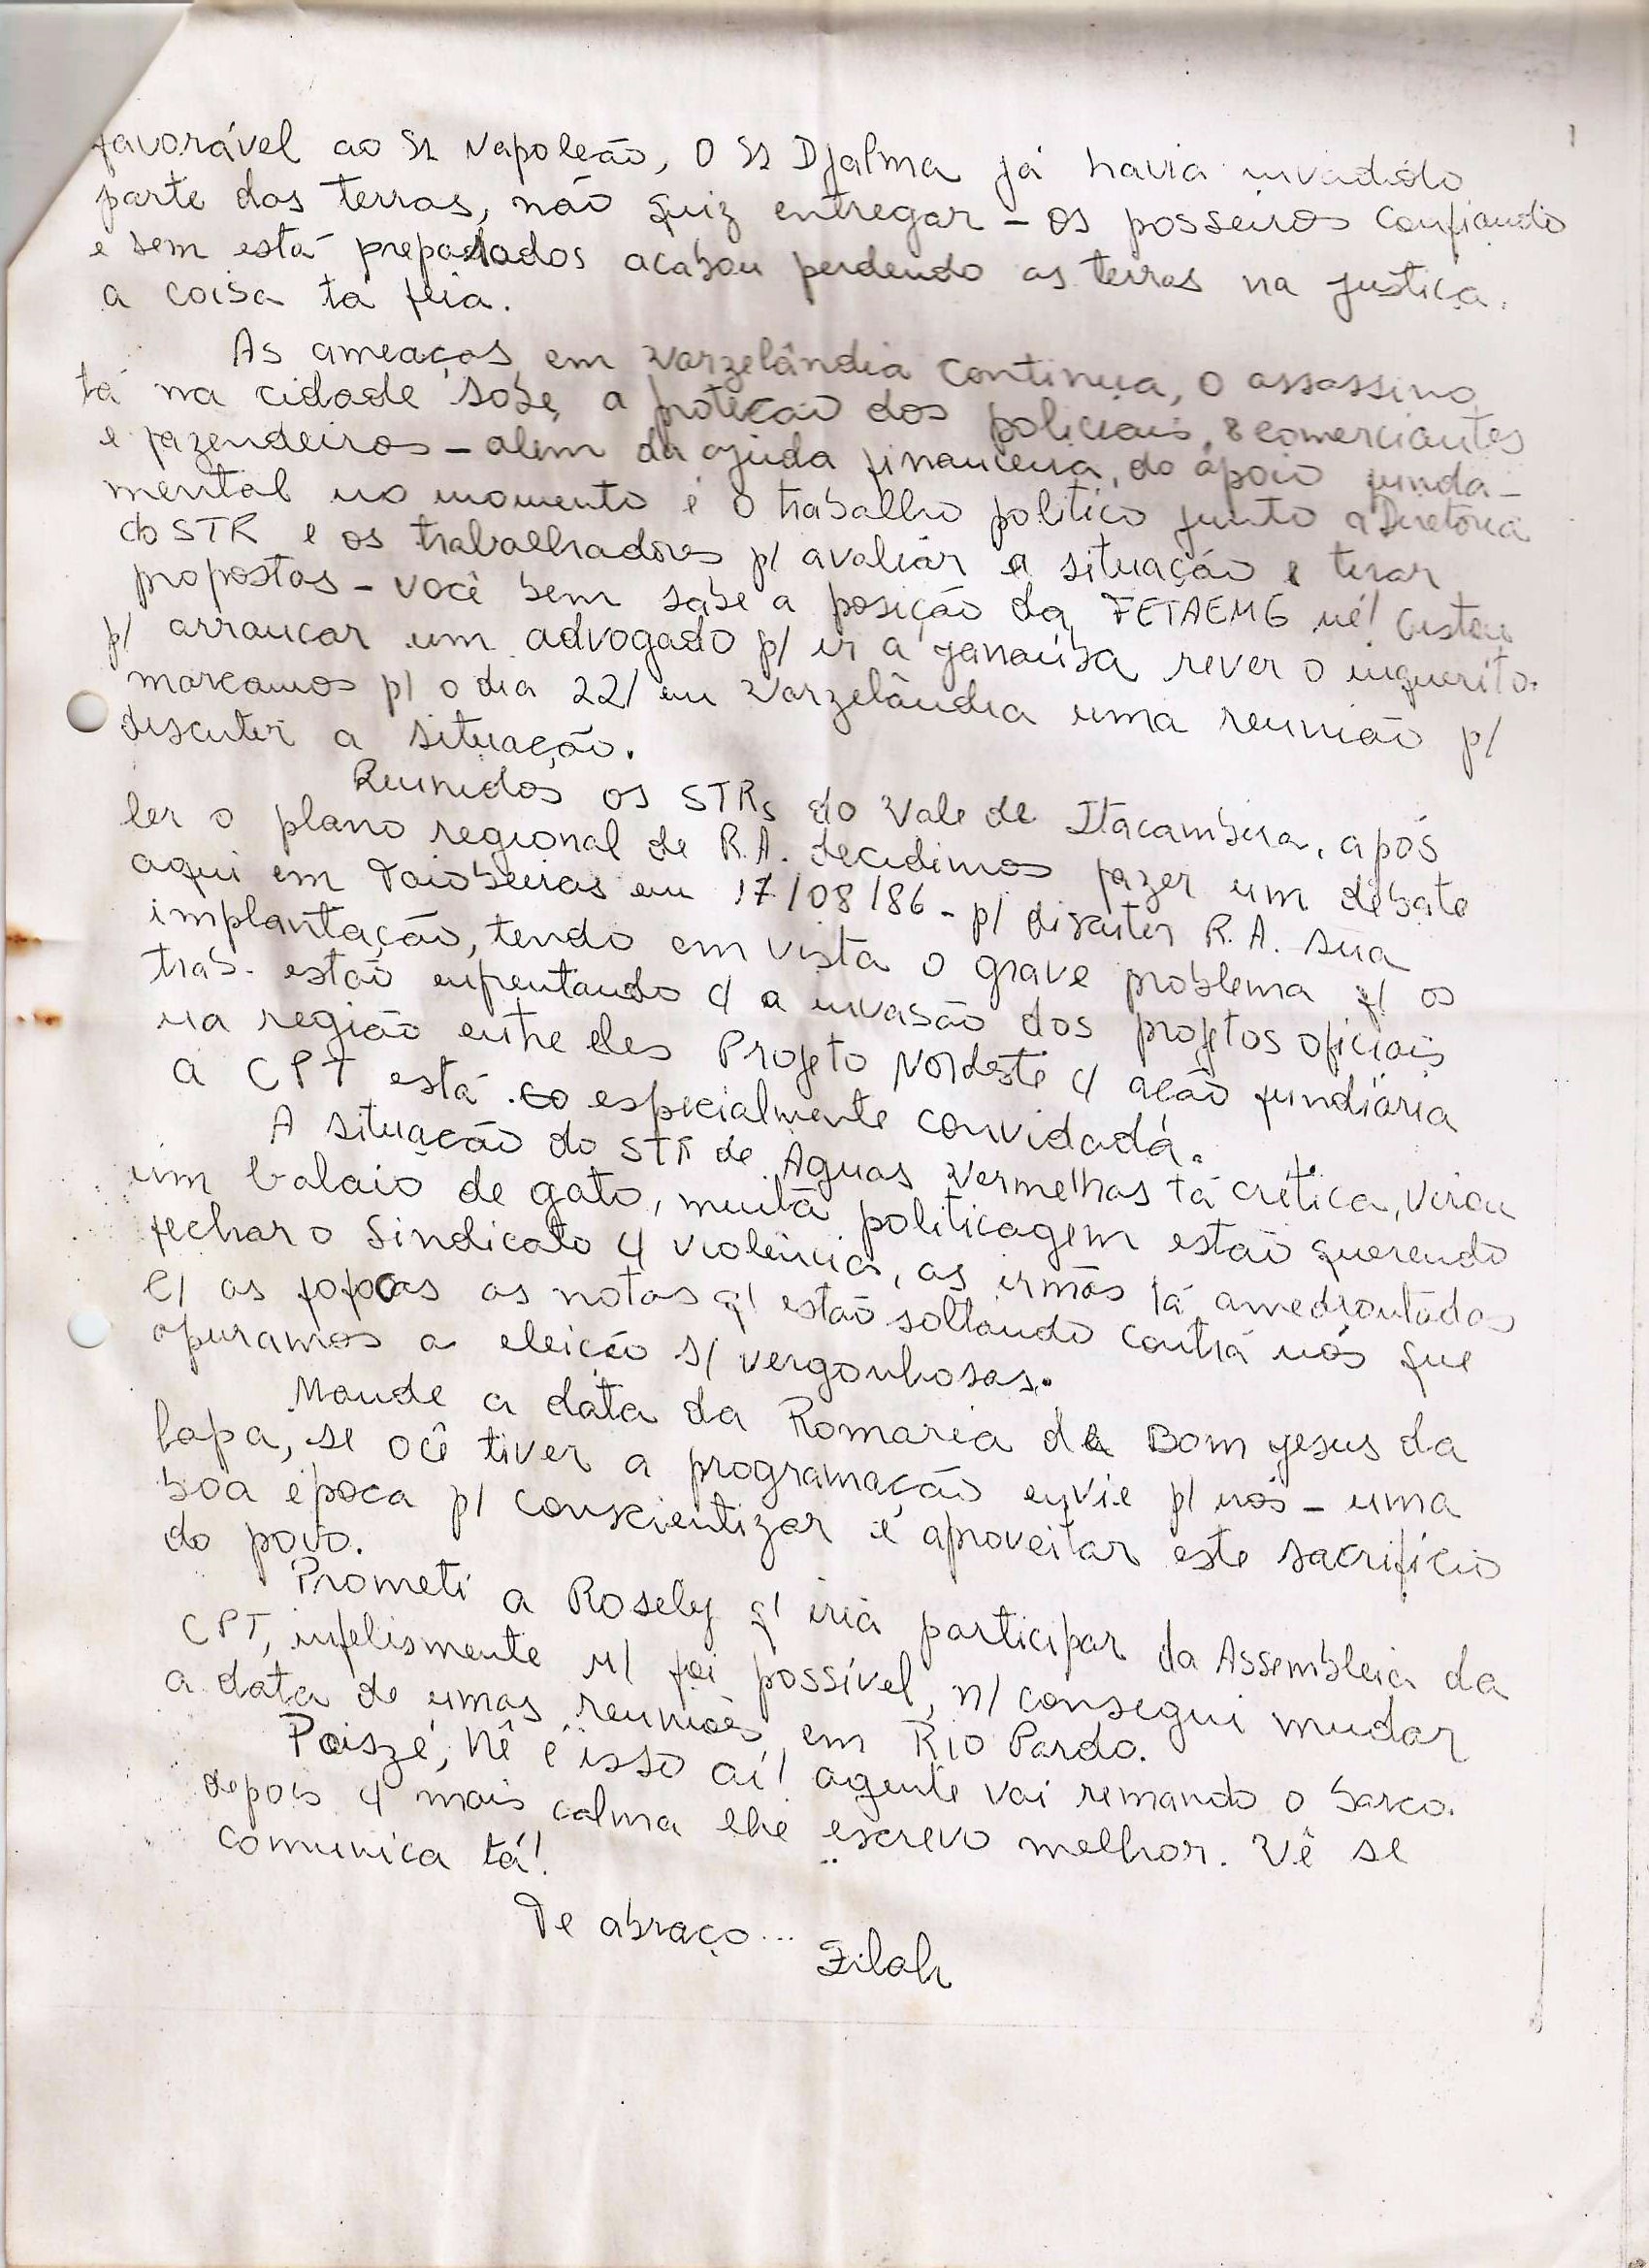 favorável ao Sr Napoleão, O Sr Djalma já havia invadido
parte das terras, não quiz entregar - os posseiros confiando
e sem está preparados acabou perdendo as terras na justiça.
a coisa tá feia.
As ameaças em Varzelândia continua, o assassino
tá na cidade sobe a proteção dos policiais, e comerciantes
e fazendeiros - alem da ajuda financeira, do apoio funda-
mental no momento é o trabalho politico junto a Diretoria
do STR e os trabalhadores p/ avaliar a situação e tirar
propostas - você bem sabe a posição da FETAEMG né! Custou
p/ arrancar um advogado p/ ir a Janaúba rever o inquerito.
marcamos p/ o dia 22/ em Varzelândia uma reunião p/
discutir a situação.
Reunidos os STRs do Vale de Itacambira, após
ler o plano regional de R.A. decidimos fazer um debate
aqui em Taiobeiras em 17/08/86 - p/ discutir R.A. sua
implantação, tendo em vista o grave problema q/ os
trab. estão enfrentando c/ a invasão dos projetos oficiais
na região entre eles Projeto Nordeste c/ ação fundiária
a CPT está especialmente convidada.
A situação do STR de Aguas Vermelhas tá crítica, virou
um balaio de gato, muita politicagem estão querendo
fechar o Sindicato c/ violência, as irmãs tá amedrontadas
c/ as fofocas as notas q' estão soltando contra nós que
apuramos a eleição s/ vergonhosas.
Mande a data da Romaria de Bom Jesus da
Lapa, se ocê tiver a programação envie p/ nós - uma
boa época p/ conscientizar e aproveitar este sacrifício
do povo.
Prometi a Rosely q' iria participar da Assembleia da
CPT, infelismente n/ foi possível, n/ consegui mudar
a data de umas reuniões em Rio Pardo.
Poiszé, Nê é isso aí! agente vai remando o barco.
depois c/ mais calma lhe escrevo melhor. Vê se
comunica tá!
Te abraço... Zilah